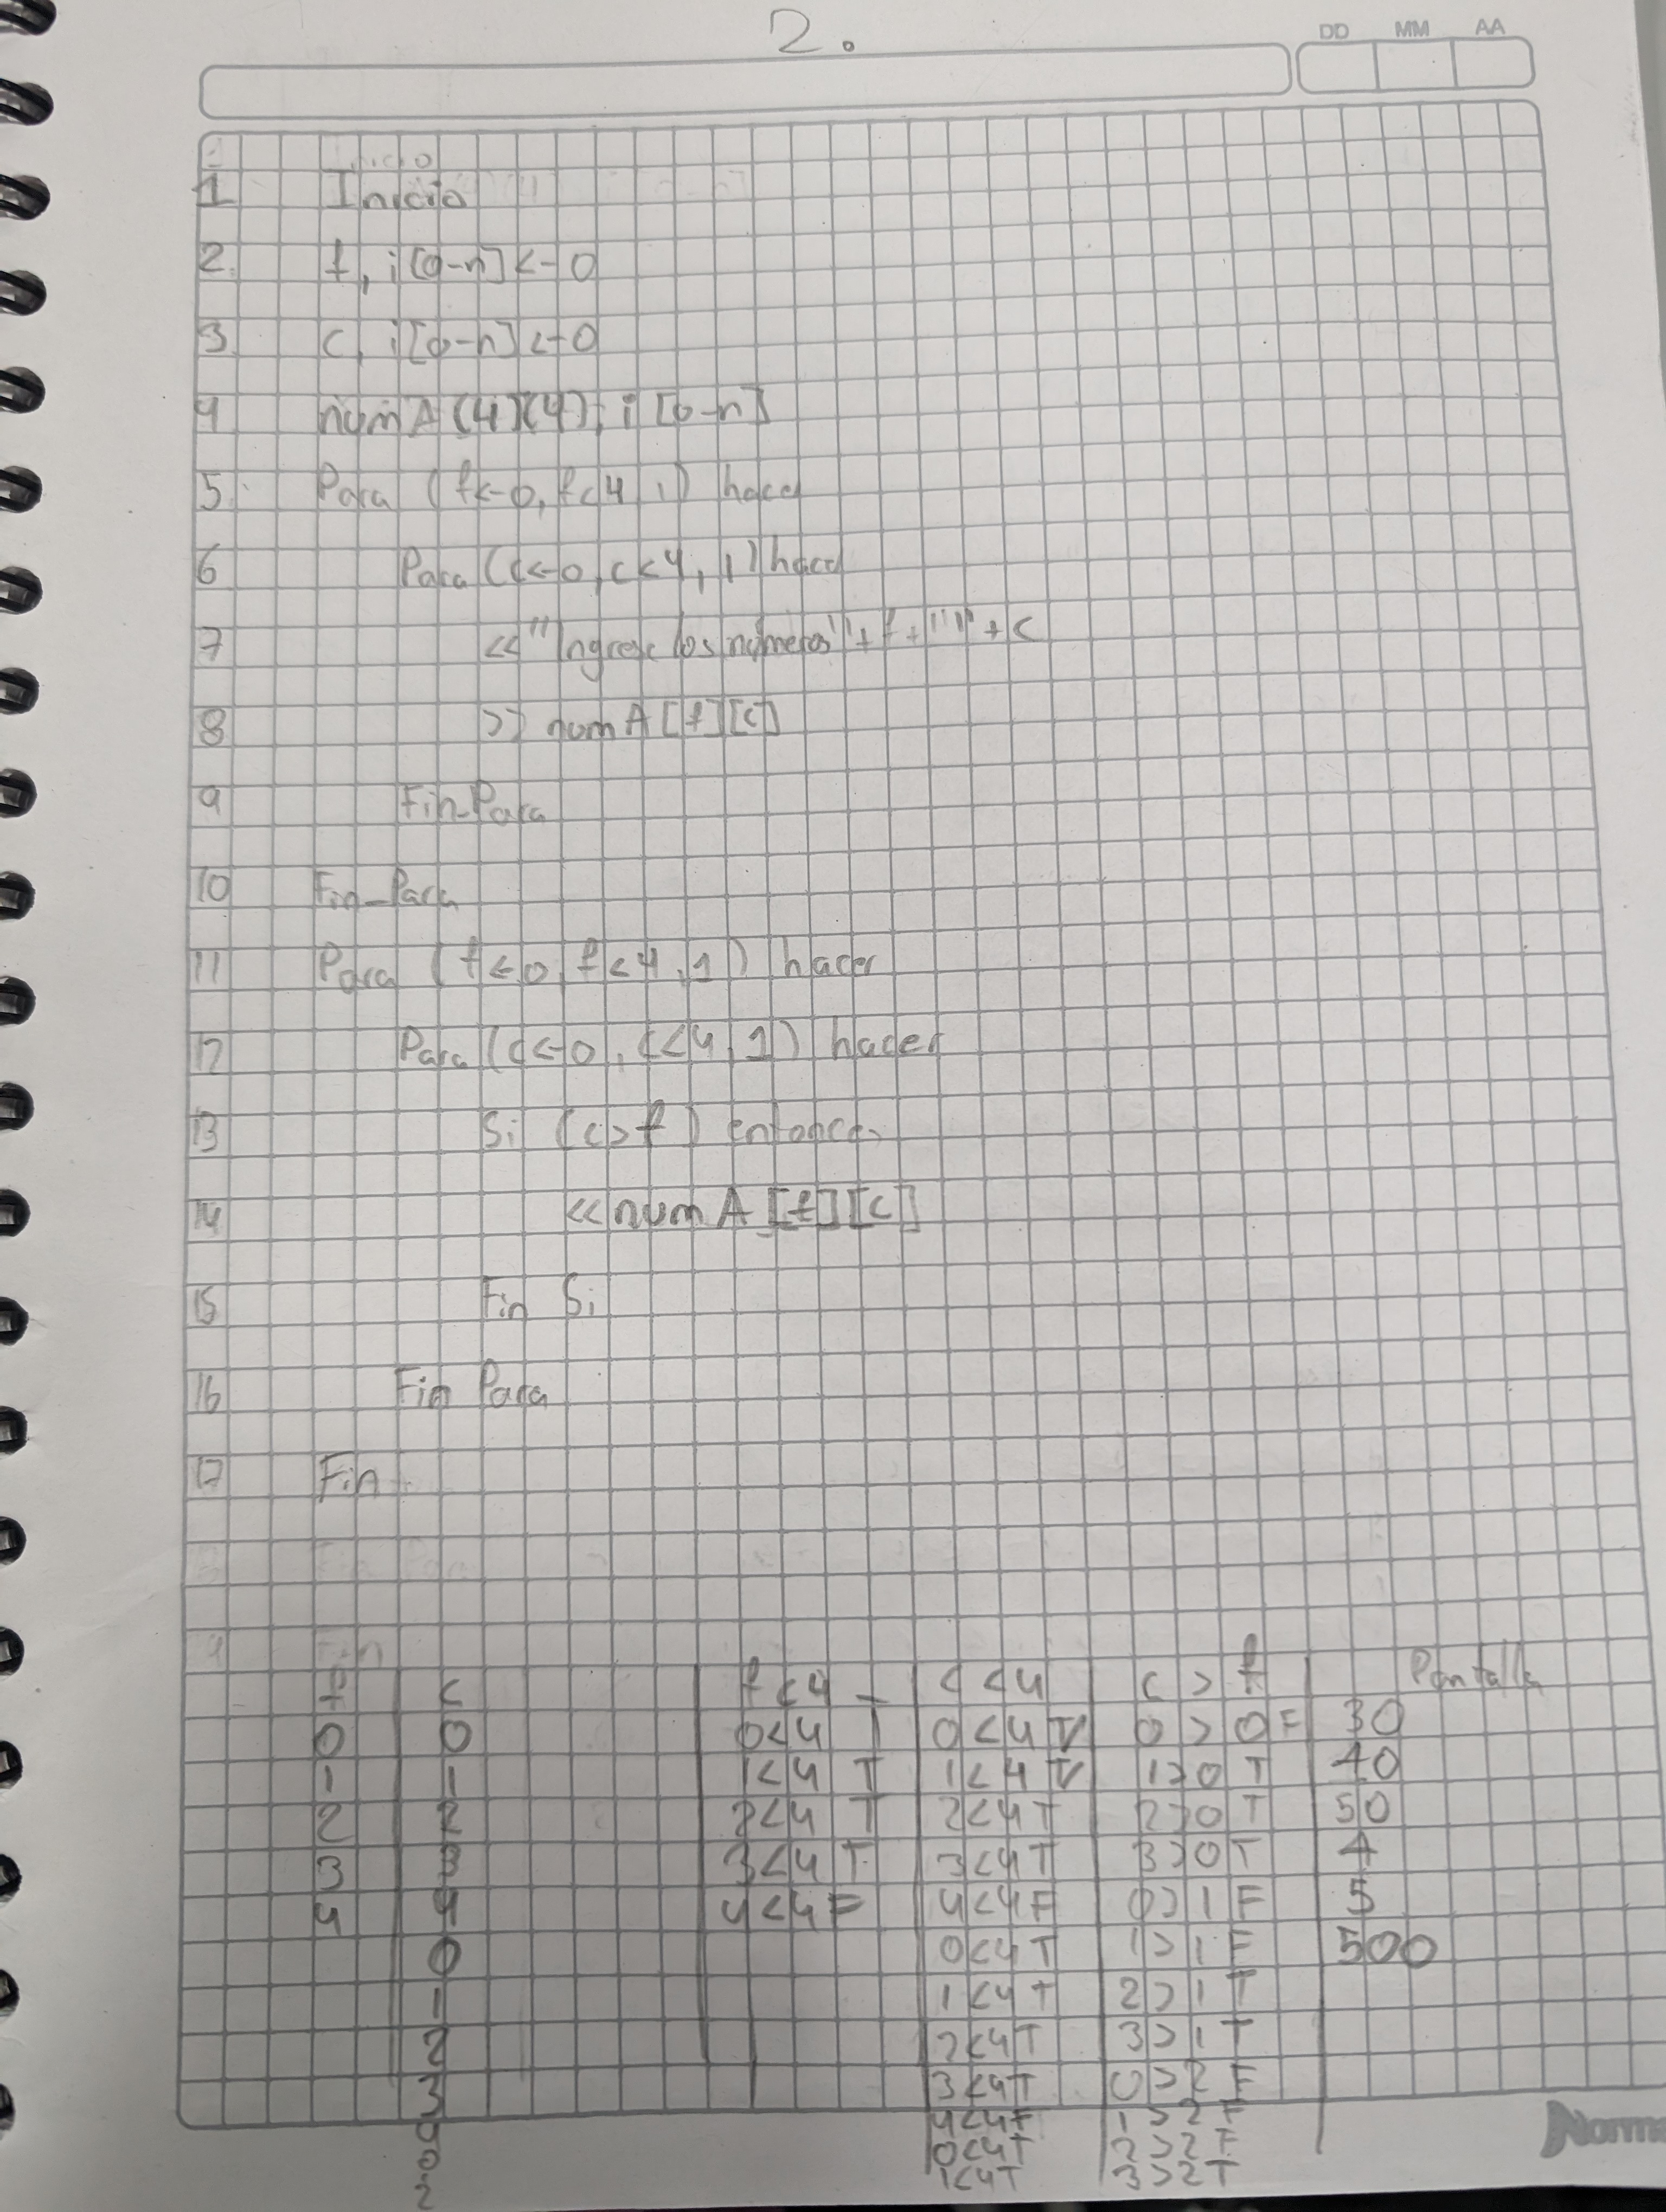 2.
DD MM AA
Inicio
1 Inicio
2. f, i[0-n] <- 0
3. c, i[0-n] <- 0
4 numA(4)(4), i[0-n]
5. Para (f<-0, f<4, 1) hacer
6 Para (c<-0, c<4, 1) hacer
7 << "Ingrese los números" + f + "" + c
8 >> numA[f][c]
9 Fin-Para
10 Fin-Para
11 Para (f<-0, f<4, 1) hacer
12 Para (c<-0, c<4, 1) hacer
13 Si (c>f) entonces
14 << numA[f][c]
15 Fin Si
16 Fin Para
17 Fin
f c f<4 c<4 c>f Pantalla
0 0 0<4 T 0<4 V 0>0 F 30
1 1 1<4 T 1<4 V 1>0 T 40
2 2 2<4 T 2<4 T 2>0 T 50
3 3 3<4 T 3<4 T 3>0 T 4
4 4 4<4 F 4<4 F 0>1 F 5
0 0<4 T 1>1 F 500
1 1<4 T 2>1 T
2 2<4 T 3>1 T
3 3<4 T 0>2 F
4 4<4 F 1>2 F
0 0<4 T 2>2 F
2 1<4 T 3>2 T
Norma